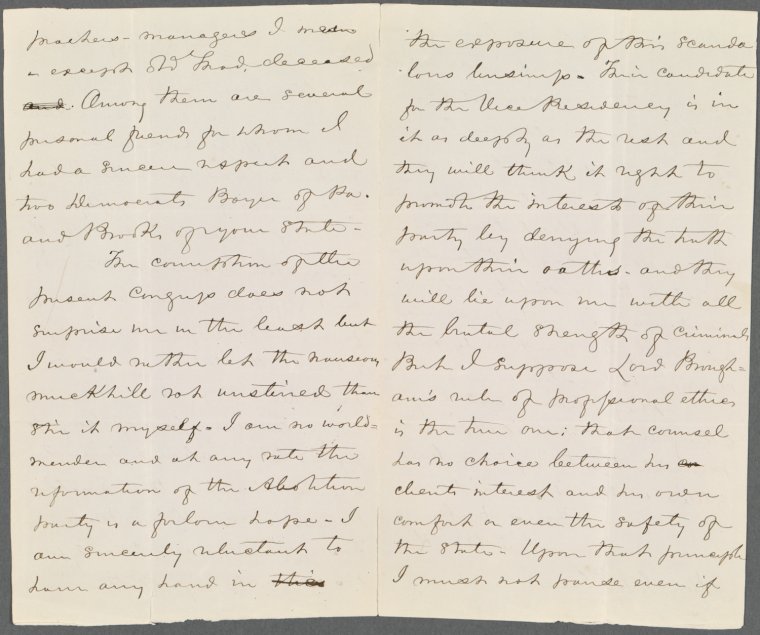 peachers - managers I mean
- except Old Thad, deceased
and. Among them are several
personal friends for whom I
had a sincere respect and
two Democrats Boyer of Pa.
and Brooks of your State -
The corruption of the
present Congress does not
surprise me in the least but
I would rather let the nauseous
muckhill rot unstirred than
stir it myself - I am no world=
mender and at any rate the
reformation of the Abolition
party is a forlorn hope - I
am sincerely reluctant to
have any hand in this
the exposure of this scanda
lous business - Their candidate
for the Vice Presidency is in
it as deeply as the rest and
they will think it right to
promote the interest of their
party by denying the truth
upon their oaths - and they
will lie upon me with all
the brutal strength of criminals
But I suppose Lord Brough=
am's rule of professional ethics
is the true one; that counsel
has no choice between his
clients interest and his own
comfort or even the safety of
the State - Upon that principle
I must not pause even if